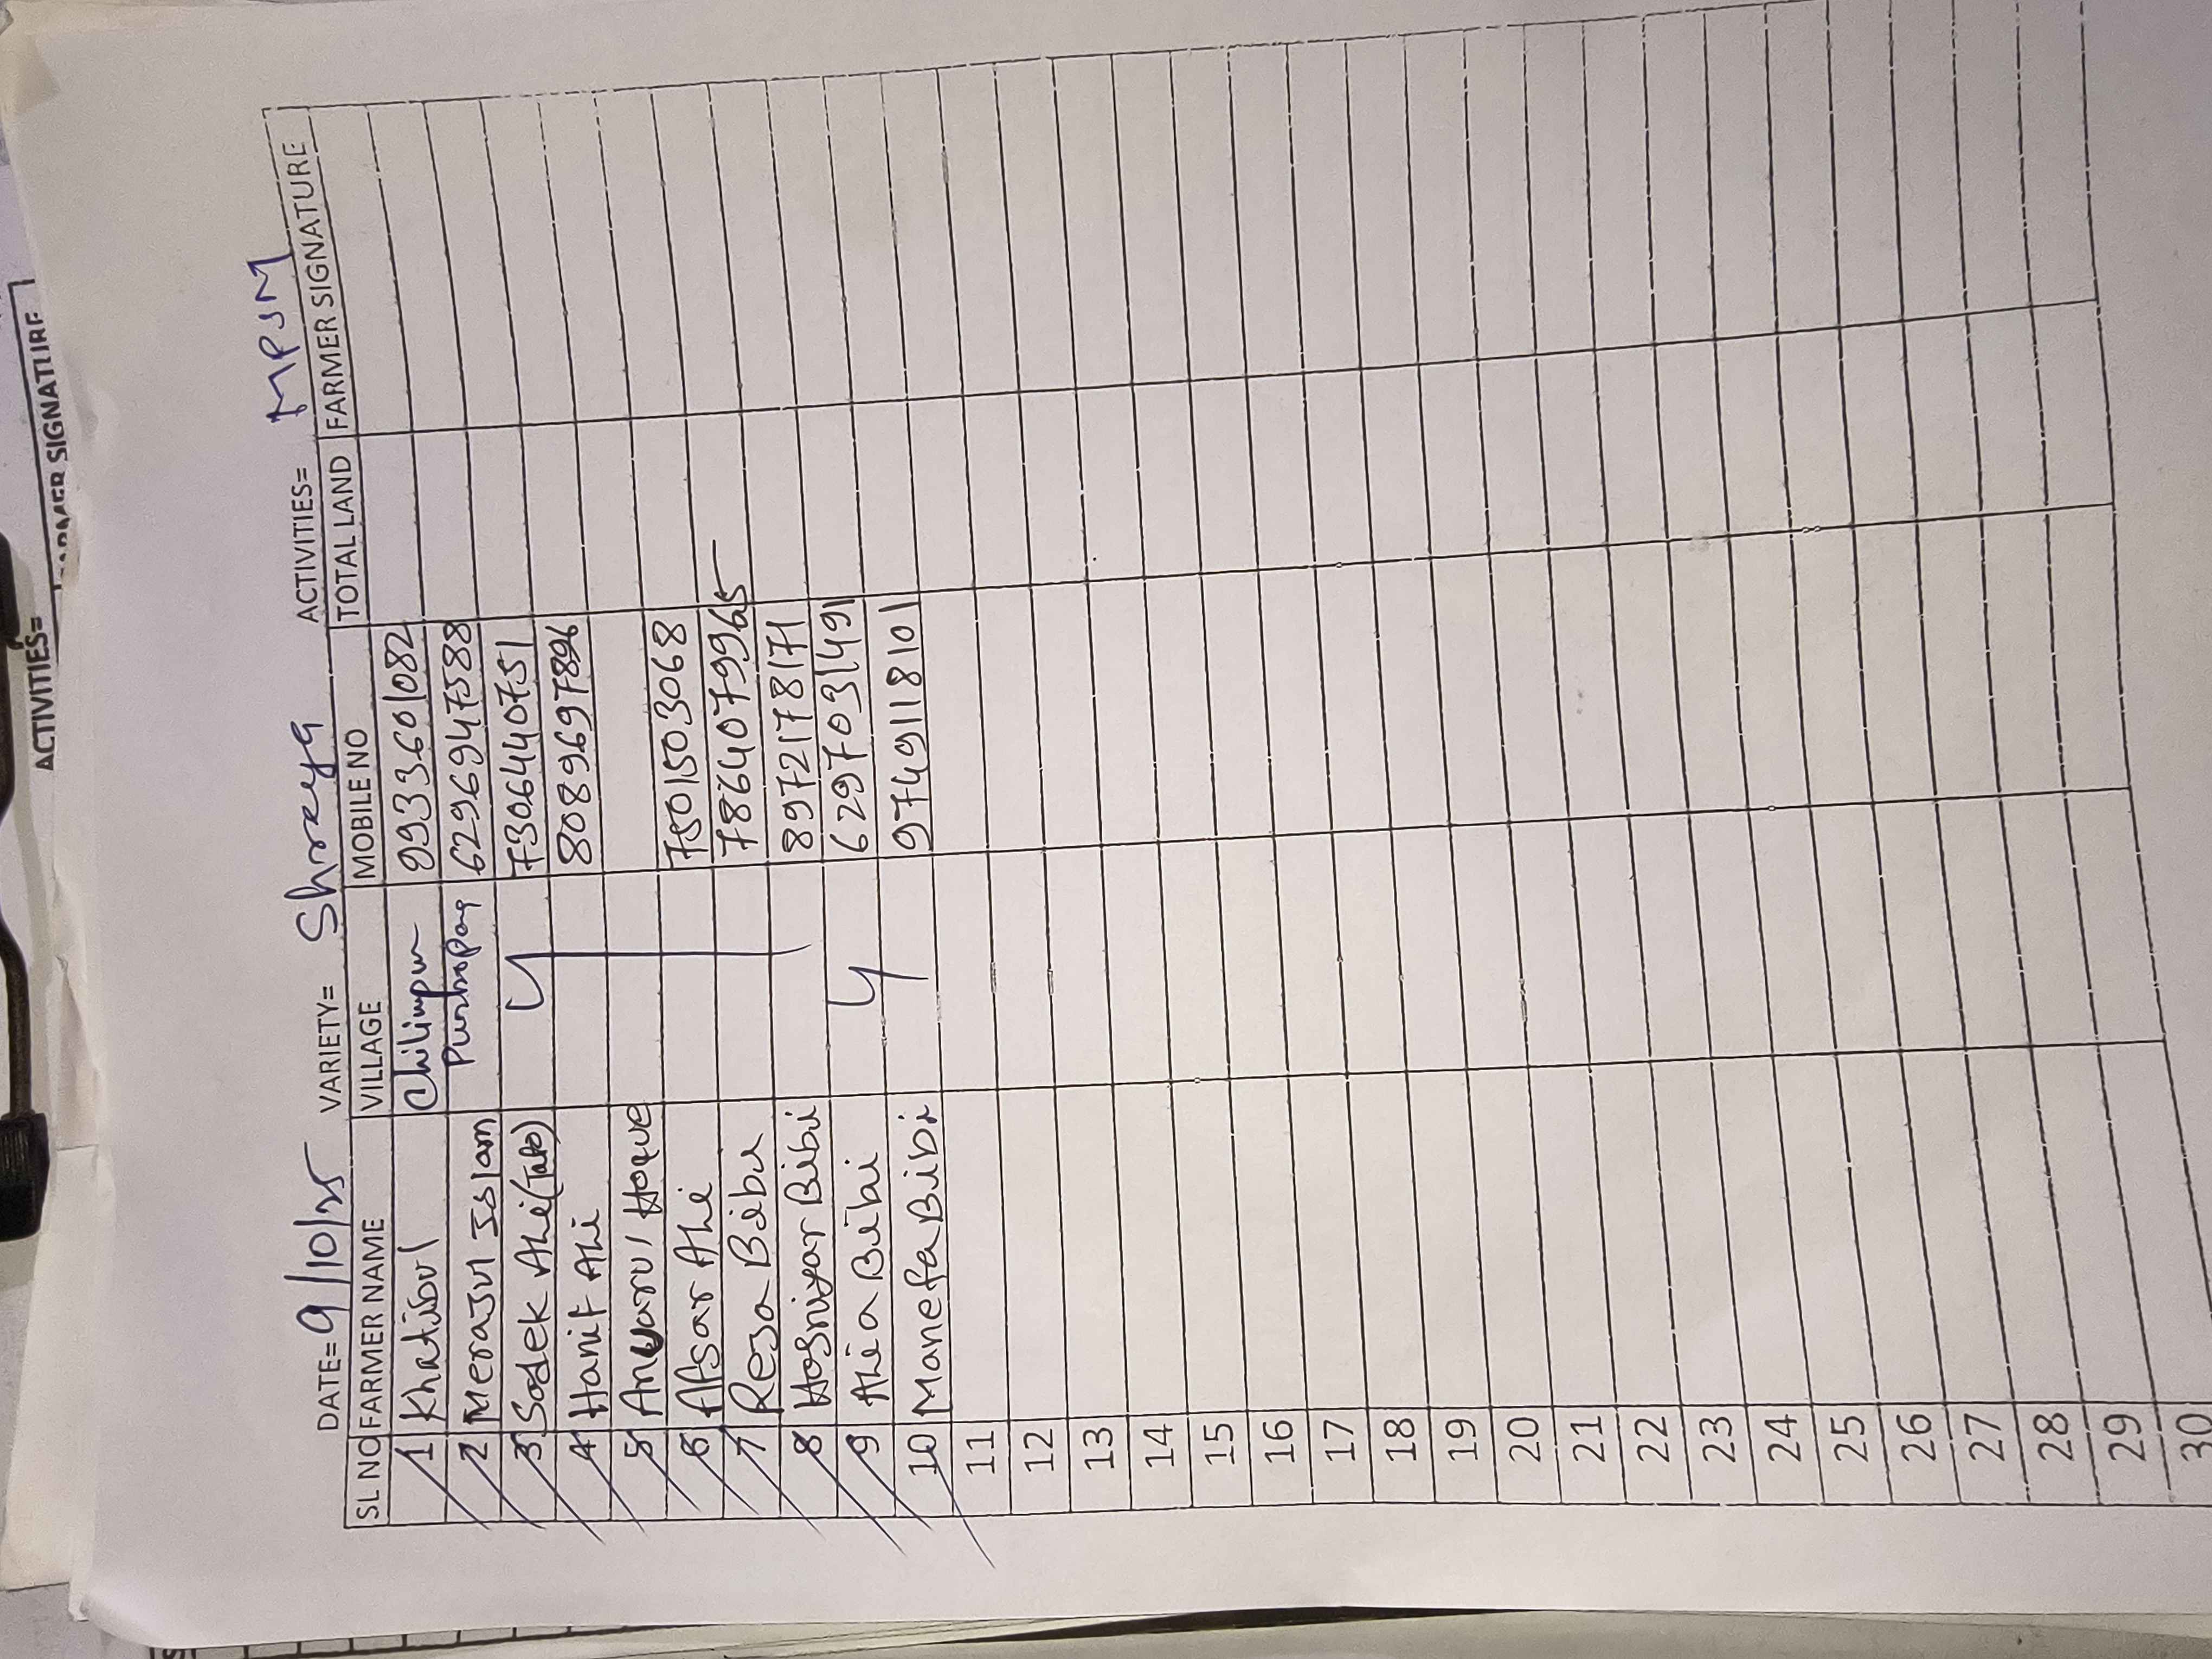 ACTIVITIES=
FARMER SIGNATURE
DATE= 9/10/25 VARIETY= Shreya ACTIVITIES= MPSM
SL NO FARMER NAME VILLAGE MOBILE NO TOTAL LAND FARMER SIGNATURE
1 Khatibul Chilimpur 9933601082
2 Merajul Islam 6296947588
3 Sadek Ali (Tako) 7306440751
4 Hanif Ali 8089697896
5 Anuarul Hoque
6 Afsar Ali 7501503068
7 Resa Bibi 7864079965
8 Hosniyar Bibi 8972178171
9 Alia Bibi 6297031491
10 Manefa Bibi 9749118101
11
12
13
14
15
16
17
18
19
20
21
22
23
24
25
26
27
28
29
30